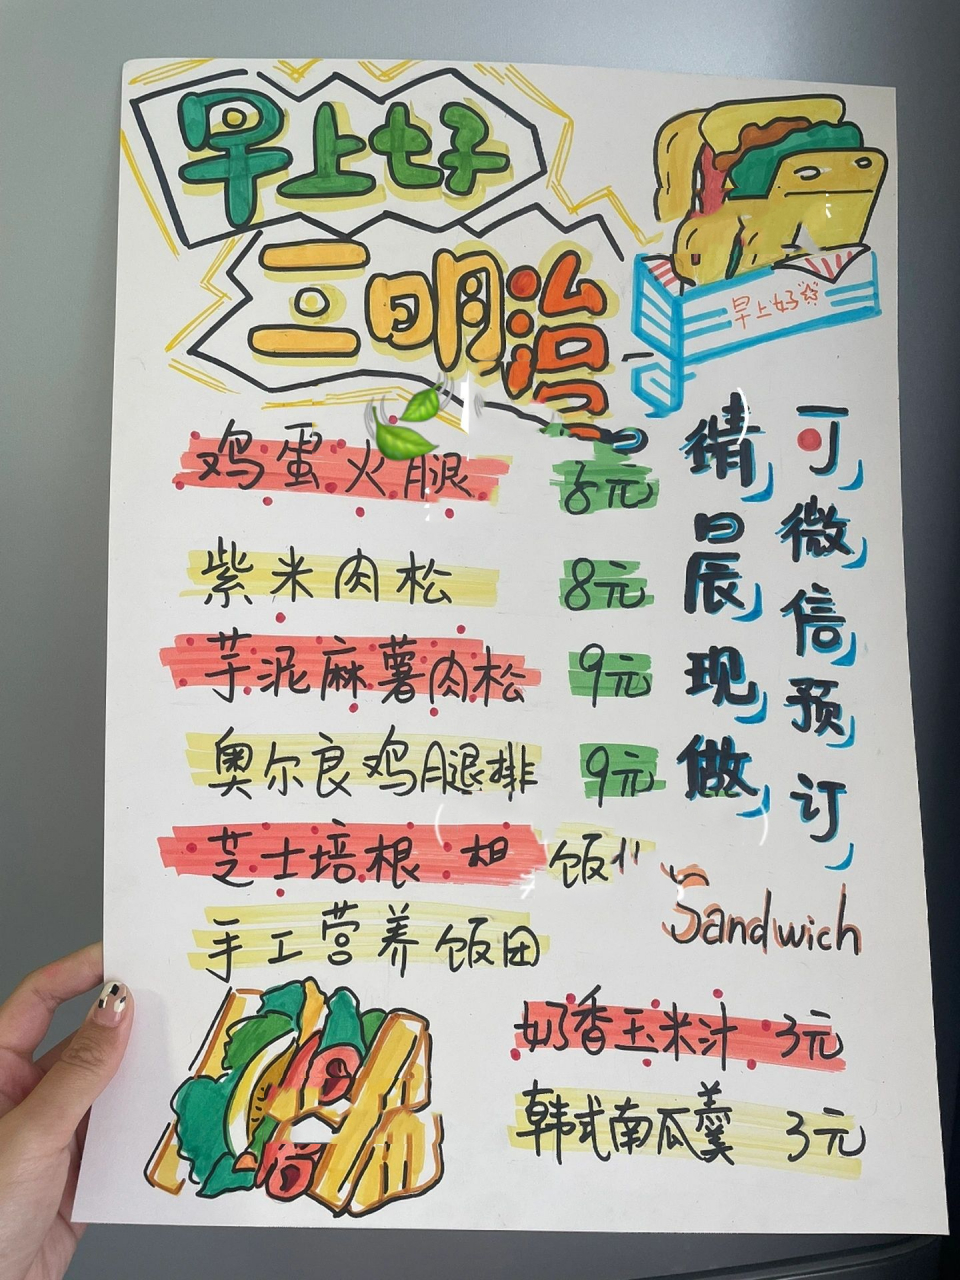 早上好
三明治
早上好
鸡蛋火腿 6元
紫米肉松 8元
芋泥麻薯肉松 9元
奥尔良鸡腿排 9元
芝士培根 饭
手工营养饭团
可微信预订
倩日辰现做
Sandwich
奶香玉米汁 3元
韩式南瓜羹 3元